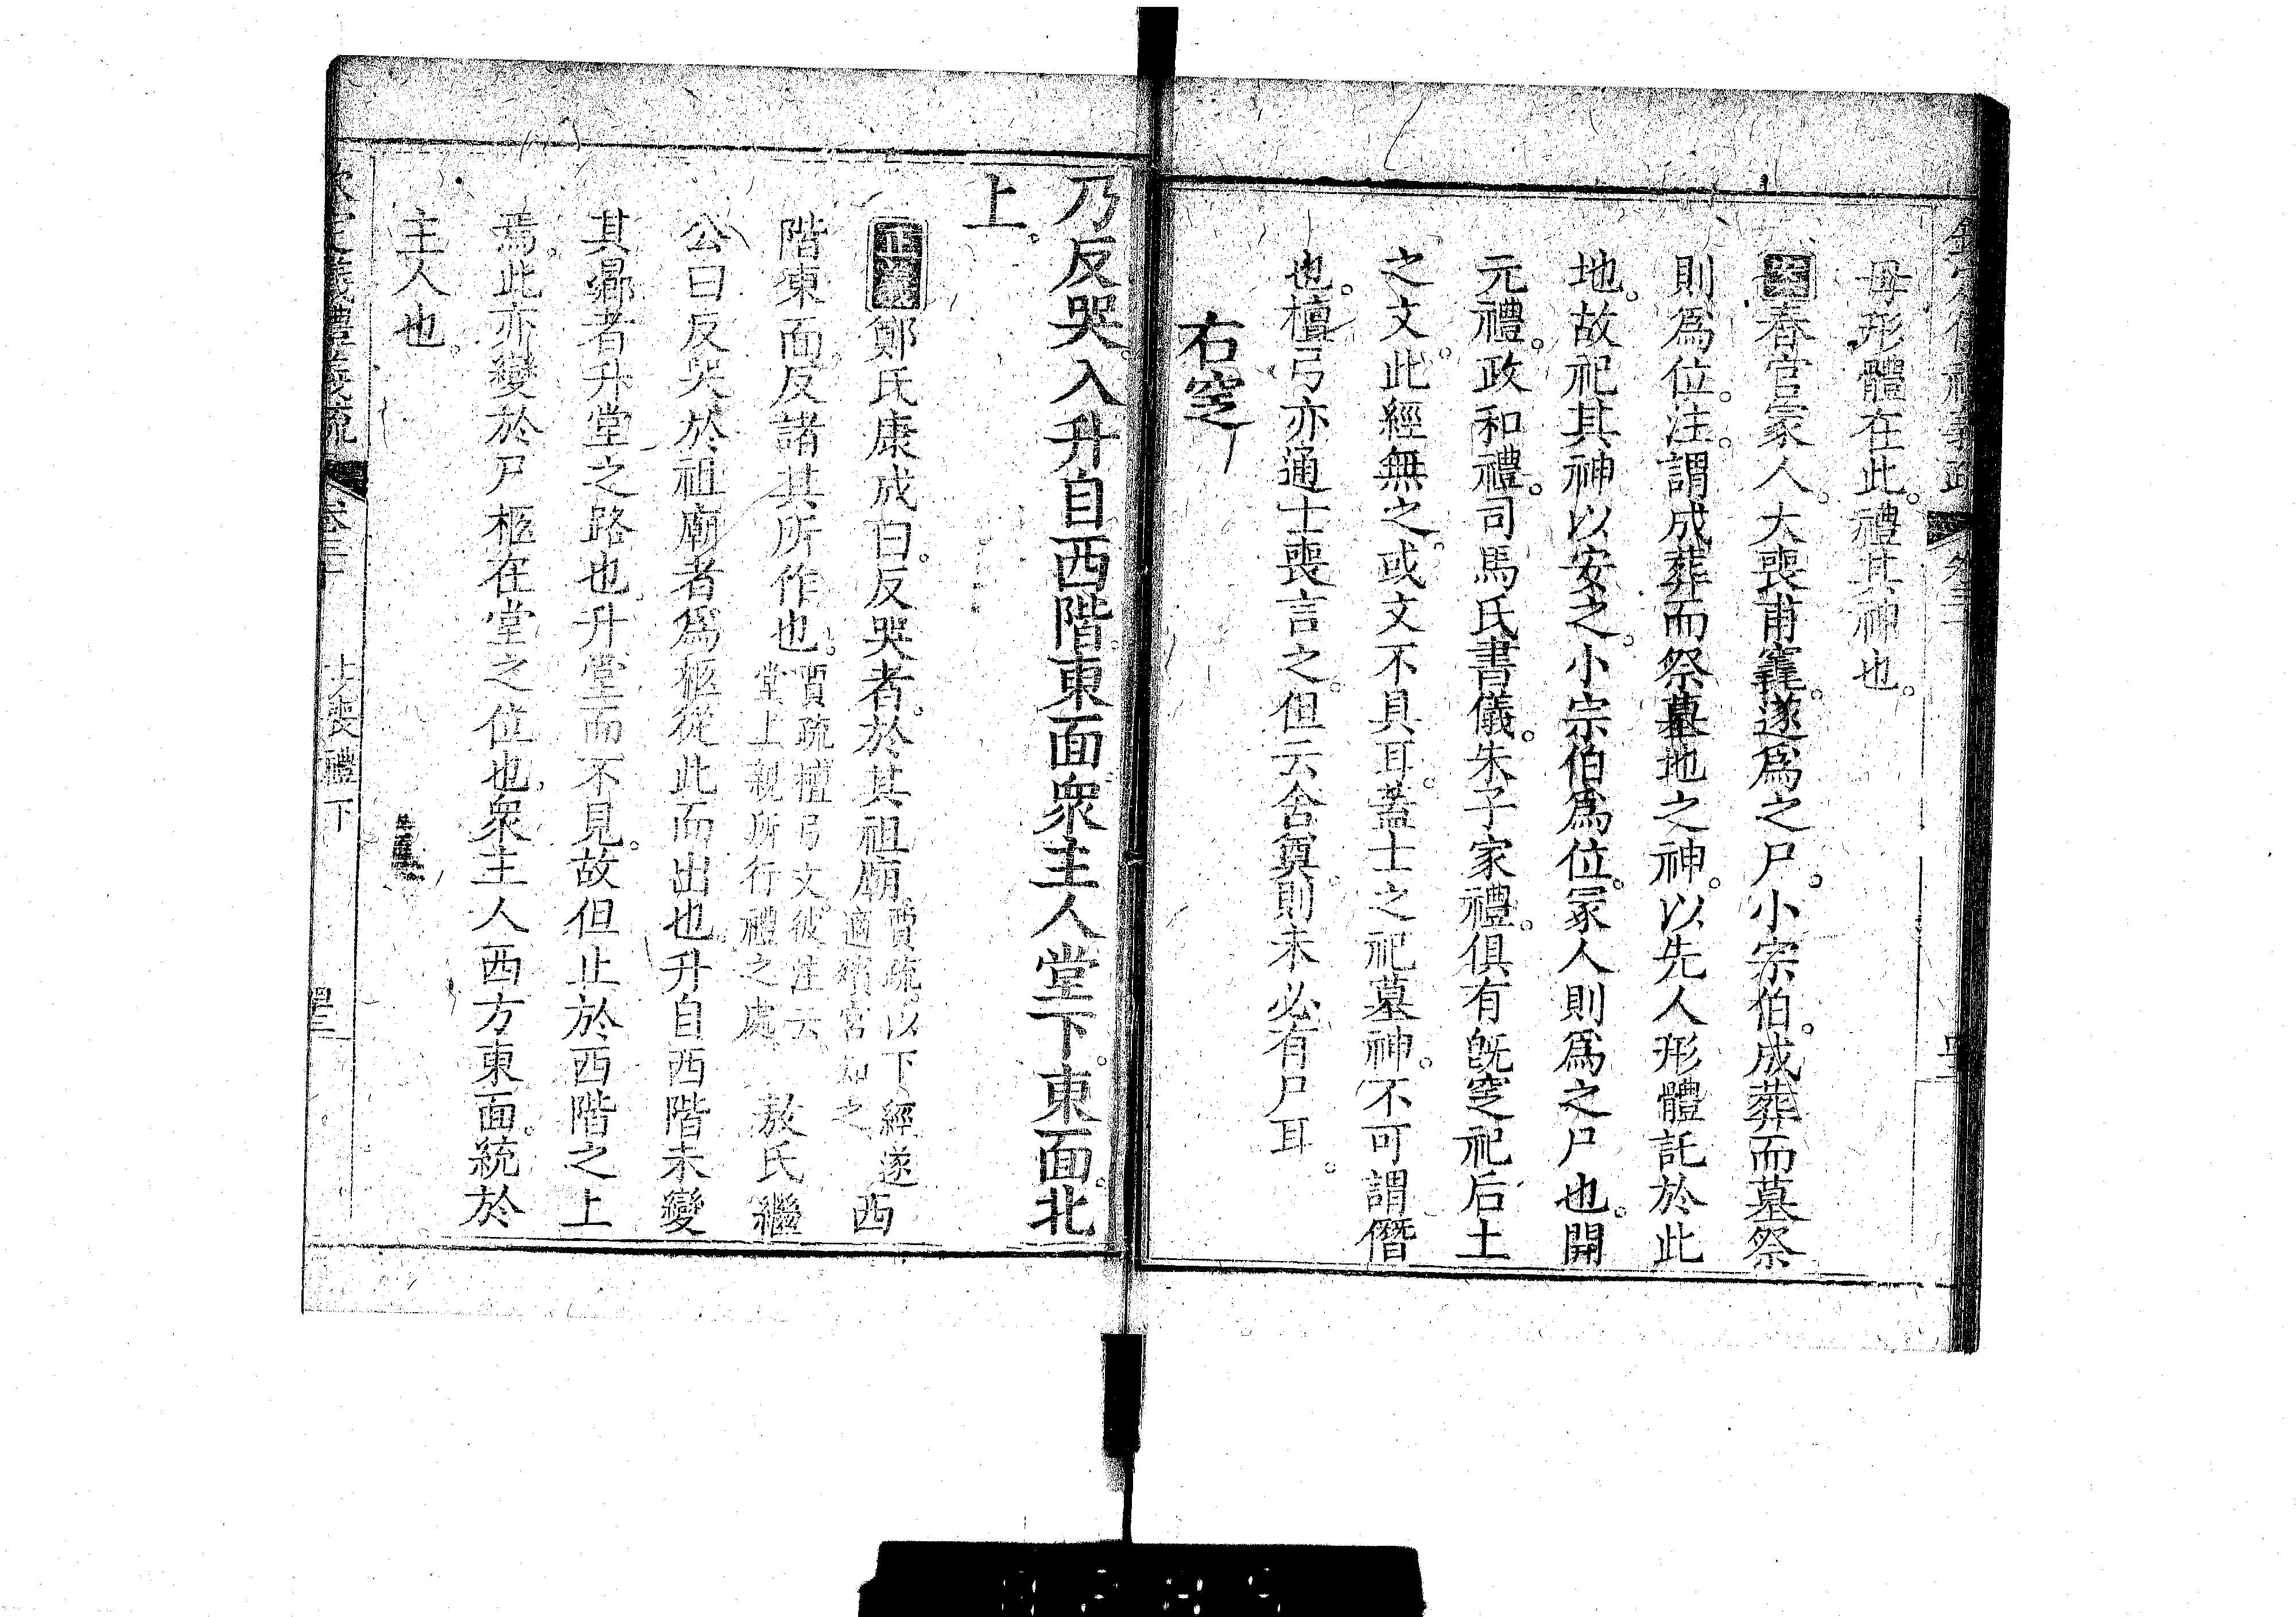 母形體在此。禮其神也。
案春官冢人。大喪甫竁。遂為之尸。小宗伯。成葬而墓祭
則為位。注。謂成葬而祭墓地之神。以先人形體託於此
地。故祀其神以安之。小宗伯為位。冢人則為之尸也。開
元禮。政和禮。司馬氏書儀。朱子家禮。俱有既窆祀后土
之文。此經無之。或文不具耳。蓋士之祀墓神。不可謂僭
也。檀弓亦通士喪言之。但云舍奠。則未必有尸耳。
右窆
乃反哭。入升自西階。東面。衆主人堂下。東面。北
上。
正義鄭氏康成曰。反哭者。於其祖廟。賈疏。以下經遂適殯宮知之 西
階東面。反諸其所作也。賈疏檀弓文。彼注云。堂上親所行禮之處 敖氏繼
公曰反哭於祖廟者為柩從此而出也。升自西階未變
其鄉者升堂之路也升堂而不見。故但止於西階之上
焉。此亦變於尸柩在堂之位也衆主人西方東面。統於
主人也。
欽定儀禮義疏 卷三十 士喪禮下